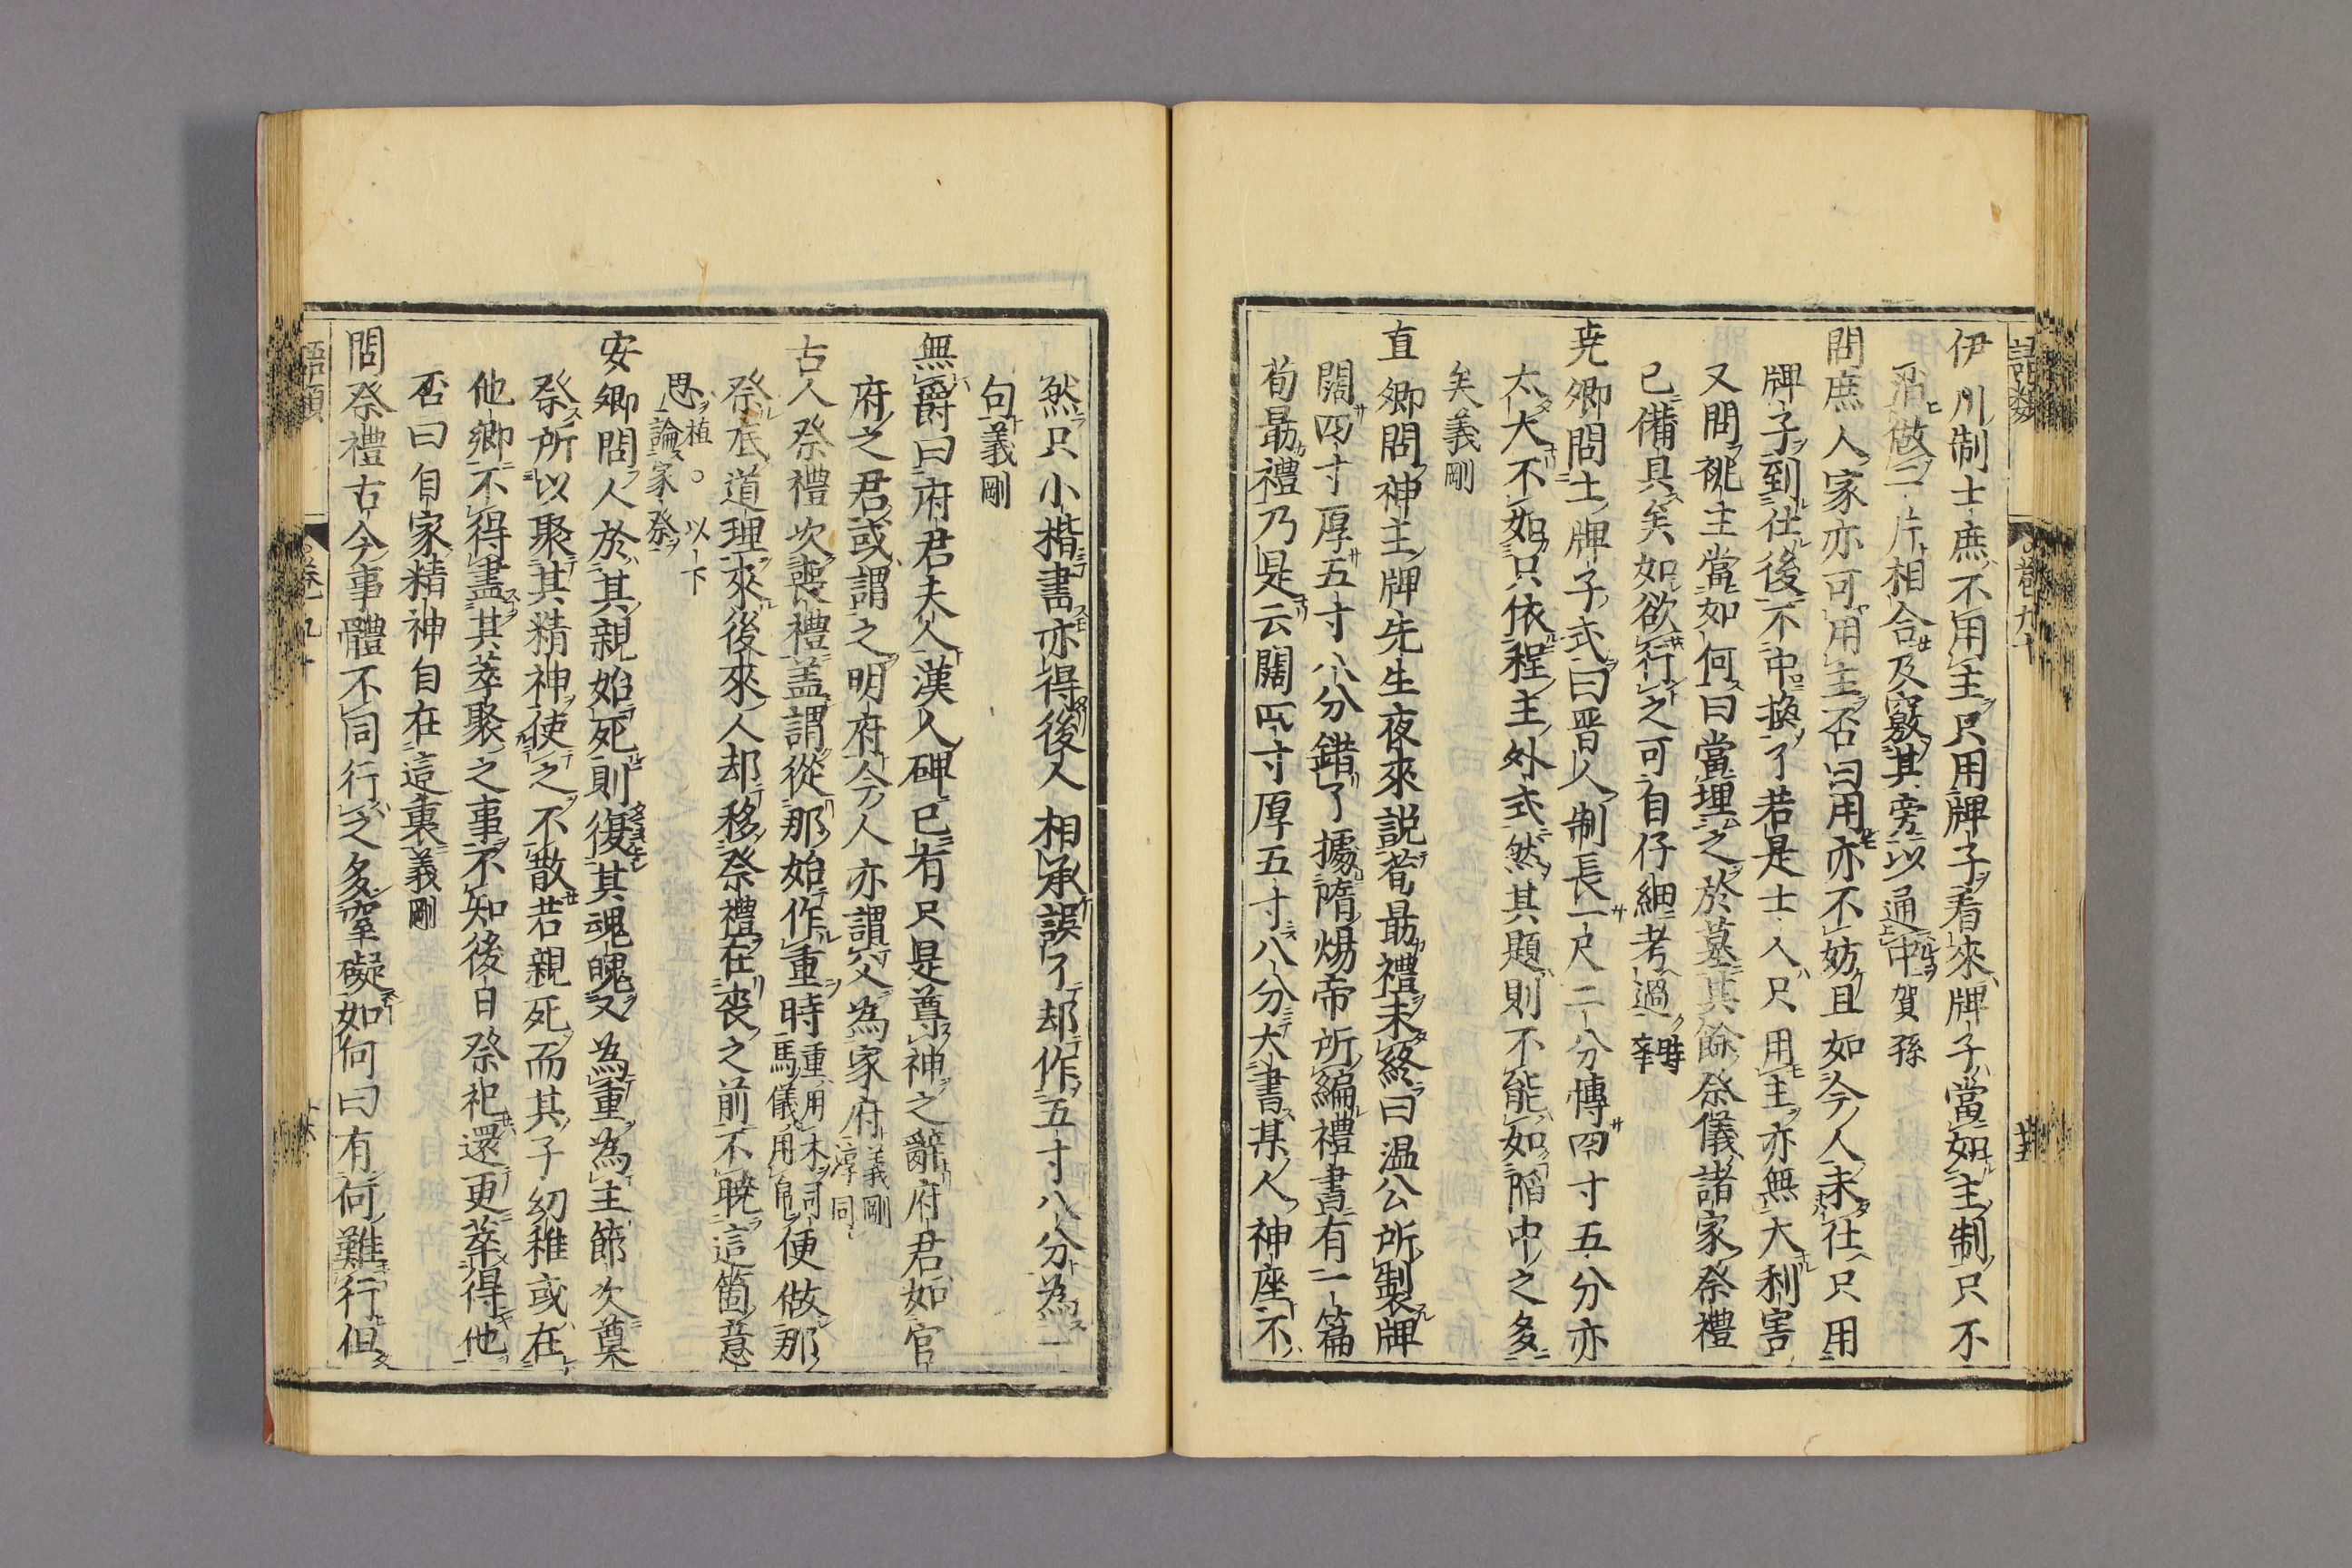 伊川制士庶不用主只用牌子看來牌子當如主制只不
消做二片相合及竅其旁以通中賀孫
問庶人家亦可用主否曰用亦不妨且如今人未仕只用
牌子到仕後不中換了若是士人只用主亦無大利害
又問祧主當如何曰當埋之於墓其餘祭儀諸家祭禮
已備具矣如欲行之可自仔細考過時舉
尭卿問士牌子式曰晋人制長一尺二分博四寸五分亦
太大不如只依程主外式然其題則不能如陥中之多
矣義剛
直卿問神主牌先生夜來説荀勗禮未終曰温公所製牌
闊四寸厚五寸八分錯了據隋煬帝所編禮書有一篇
荀勗禮乃是云闊四寸厚五寸八分大書某人神座不
語類
卷九十
然只小楷書亦得後人相承誤了却作五寸八分為一
句義剛
無爵曰府君夫人漢人碑已有只是尊神之辭府君如官
府之君或謂之明府今人亦謂父為家府義剛淳同
古人祭禮次喪禮盖謂從那始作重時重用木司馬儀用帛便做那
祭底道理來後來人却移祭禮在喪之前不曉這箇意
思植○以下論家祭
安卿問人於其親始死則復其魂魄又為重為主節次奠
祭所以聚其精神使之不散若親死而其子幼稚或在
他卿不得盡其萃聚之事不知後日祭祀還更萃得他
否曰自家精神自在這裏義剛
問祭禮古今事體不同行之多窒礙如何曰有何難行但
語類
卷九十